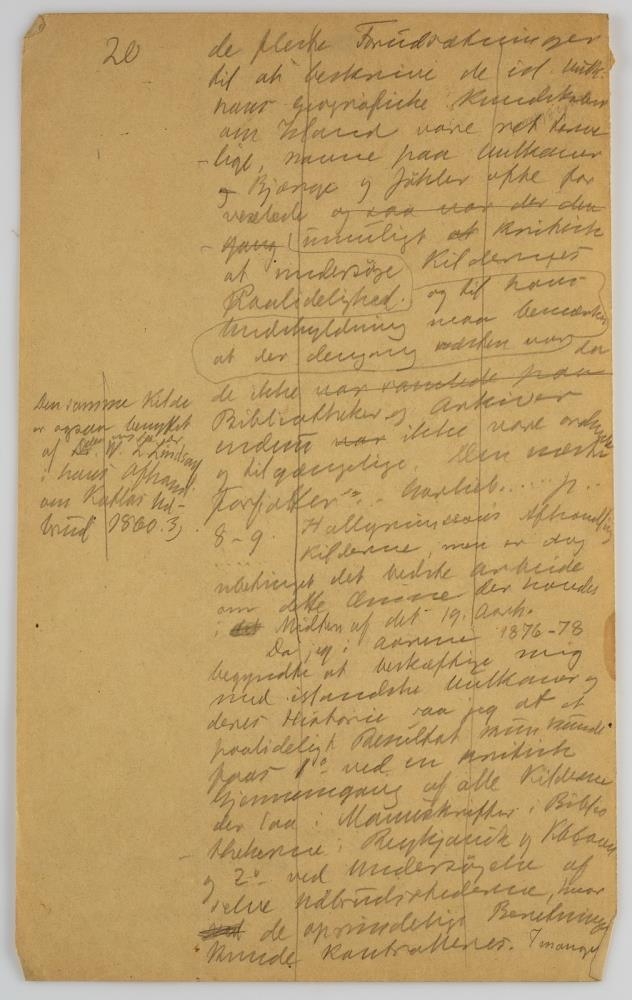 20
de fleste Forudsætninger
til at beskrive de isl. Vulk.
hans geografiske Kundskaber
om Island vare ret
lige, navne paa Vulkaner
og Bjærge og Jøkler ofte for
vexlede og saa var der den
gang umuligt at kritisk
at undersøge Kildernes
Paalidelighed. og til hans
Undskyldning maa bemærkes
at der dengang næsten var da
de ikke var samlede paa
Bibliotheker og Arkiver
endnu var ikke vare ordnede
og tilgængelige. Den
Forfatter
8-9. Hallgrimssons Afhandling
Kilderne, men er dog
ubetinget det bedste Arbeide
om dette Æmne der haudes
i det Midten af det 19. Aarh.
Da jeg i aarene 1876-78
begyndte at beskæftige mig
med islandske Vulkaner og
deres Historie saa jeg at et
paalideligt Resultat kun kunde
faas 1° ved en kritisk
Gjennemgang af alle Kilderne
der laa i Manuskrifter i Biblio
thekerne i Reykjavik og Kbhavn
og 2° ved Undersøgelse af
selve Udbrudsstederne, hvor
de oprindelige Beretninger
kunde kontrolleres. I mange
Den samme Kilde
er ogsaa benyttet
af W. L. Lindsay
i hans Afhandl.
om Katlas Ud-
brud 1860. 3)